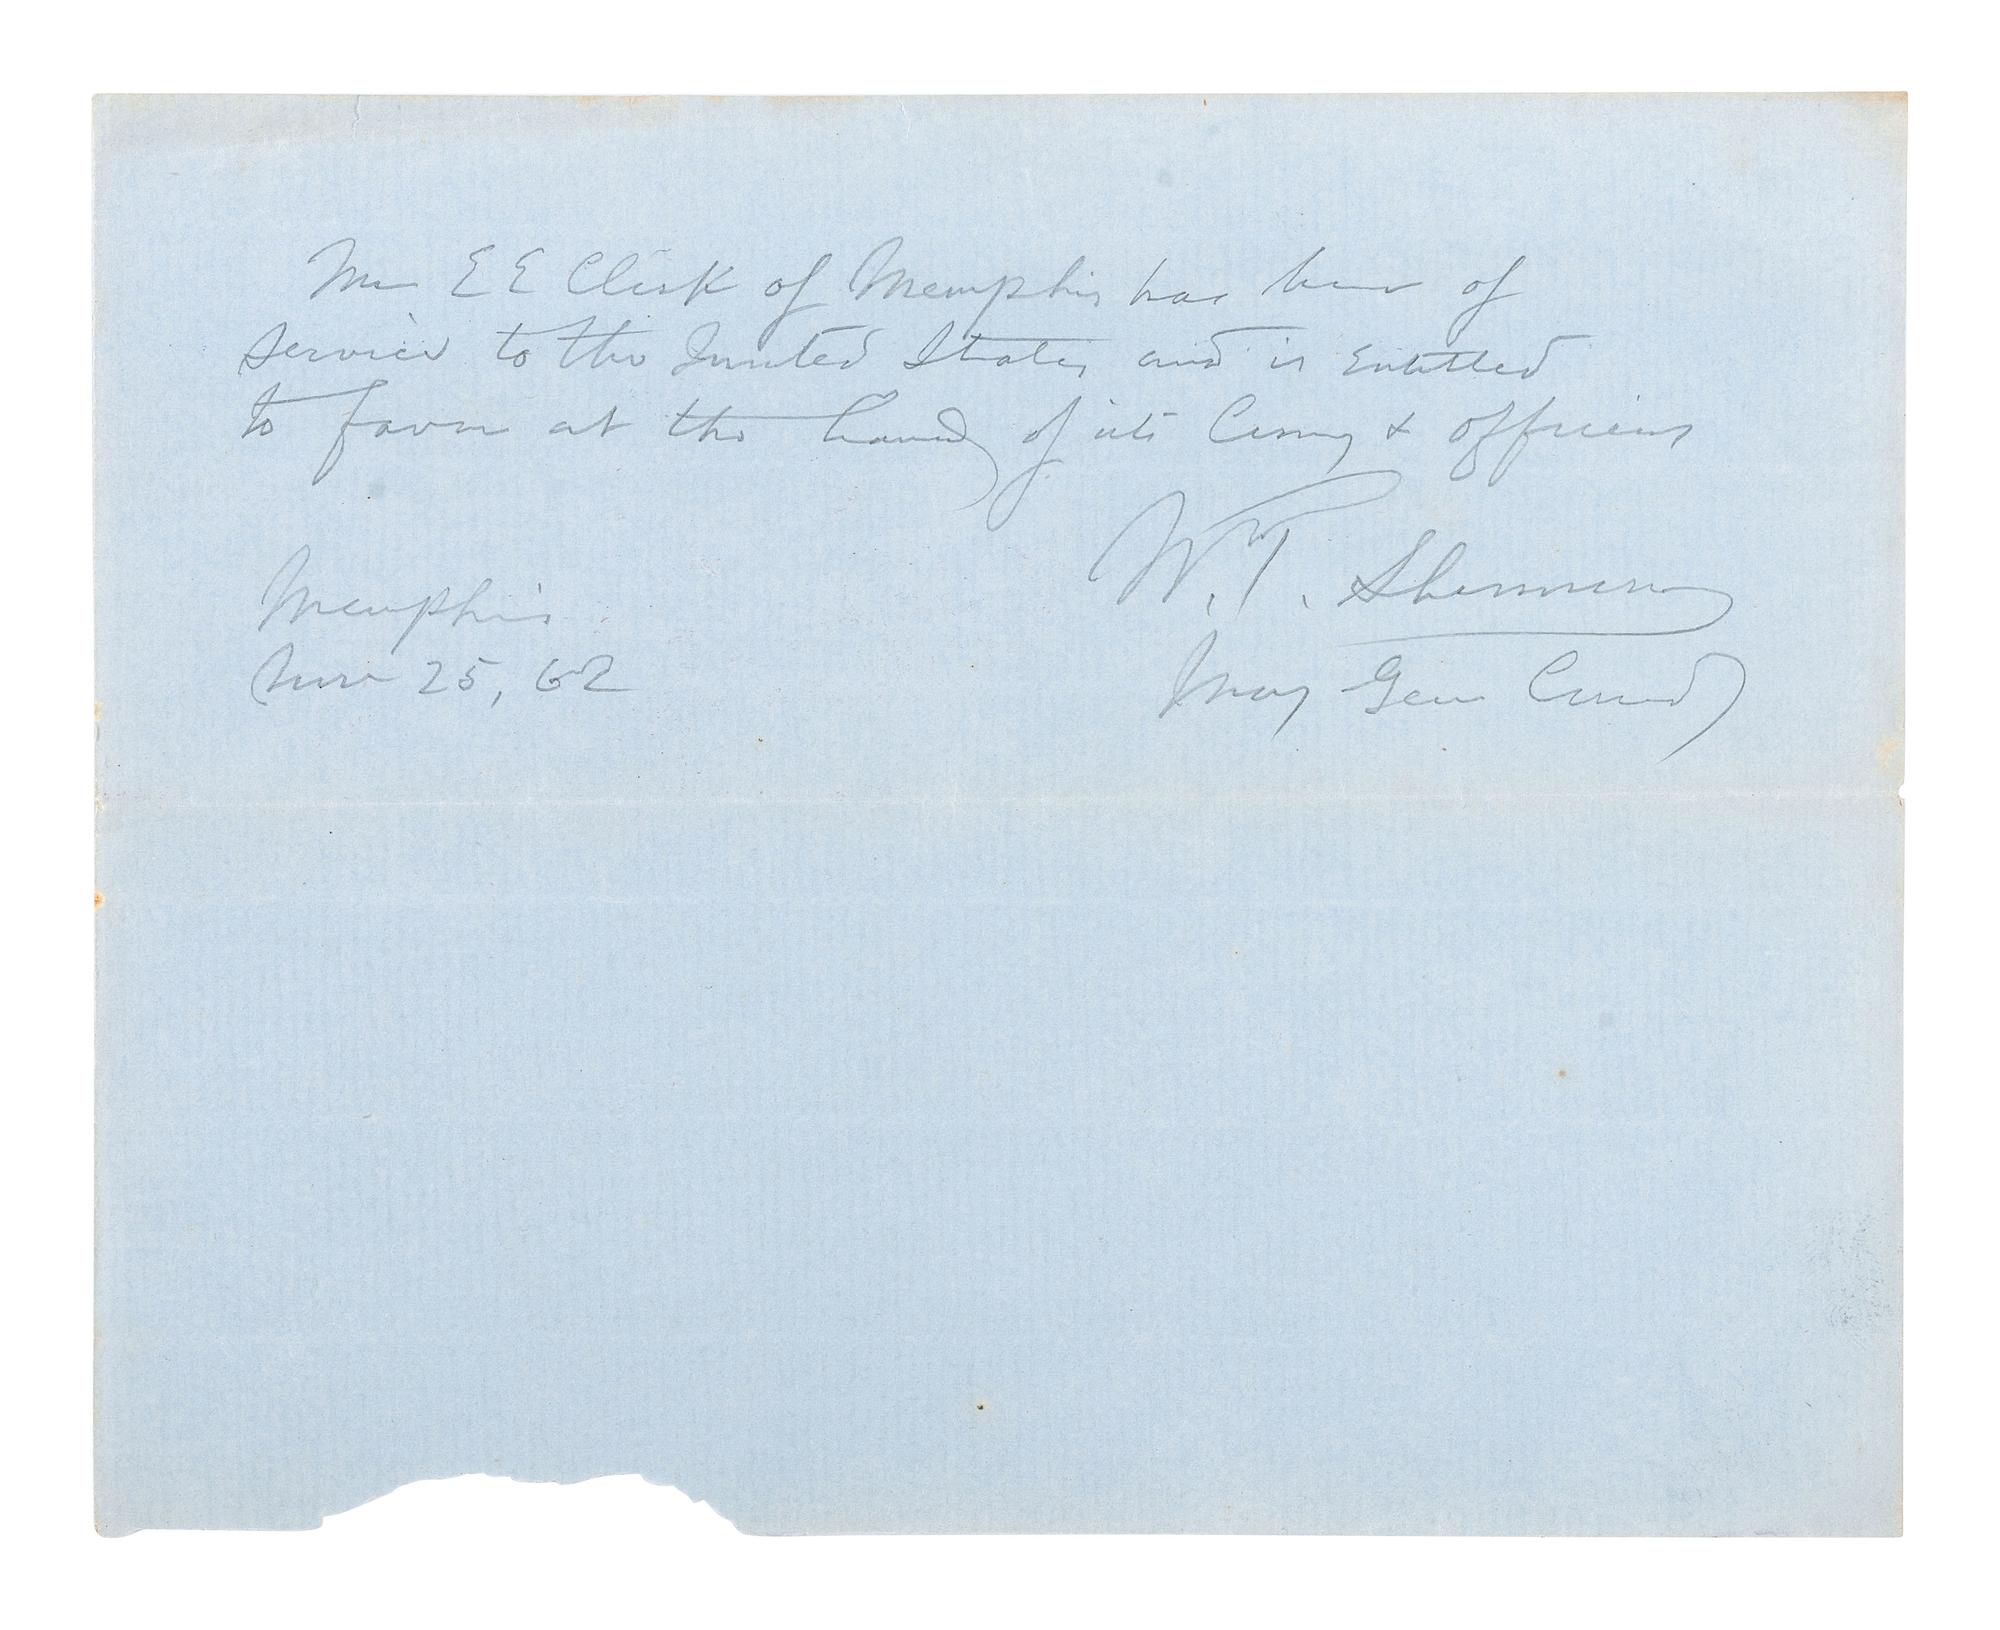 Mr E E Clark of Memphis has been of
service to the United States and is entitled
to favor at the hands of its Army & officers
W. T. Sherman
Maj Genl Comdg
Memphis
Nov 25, 62